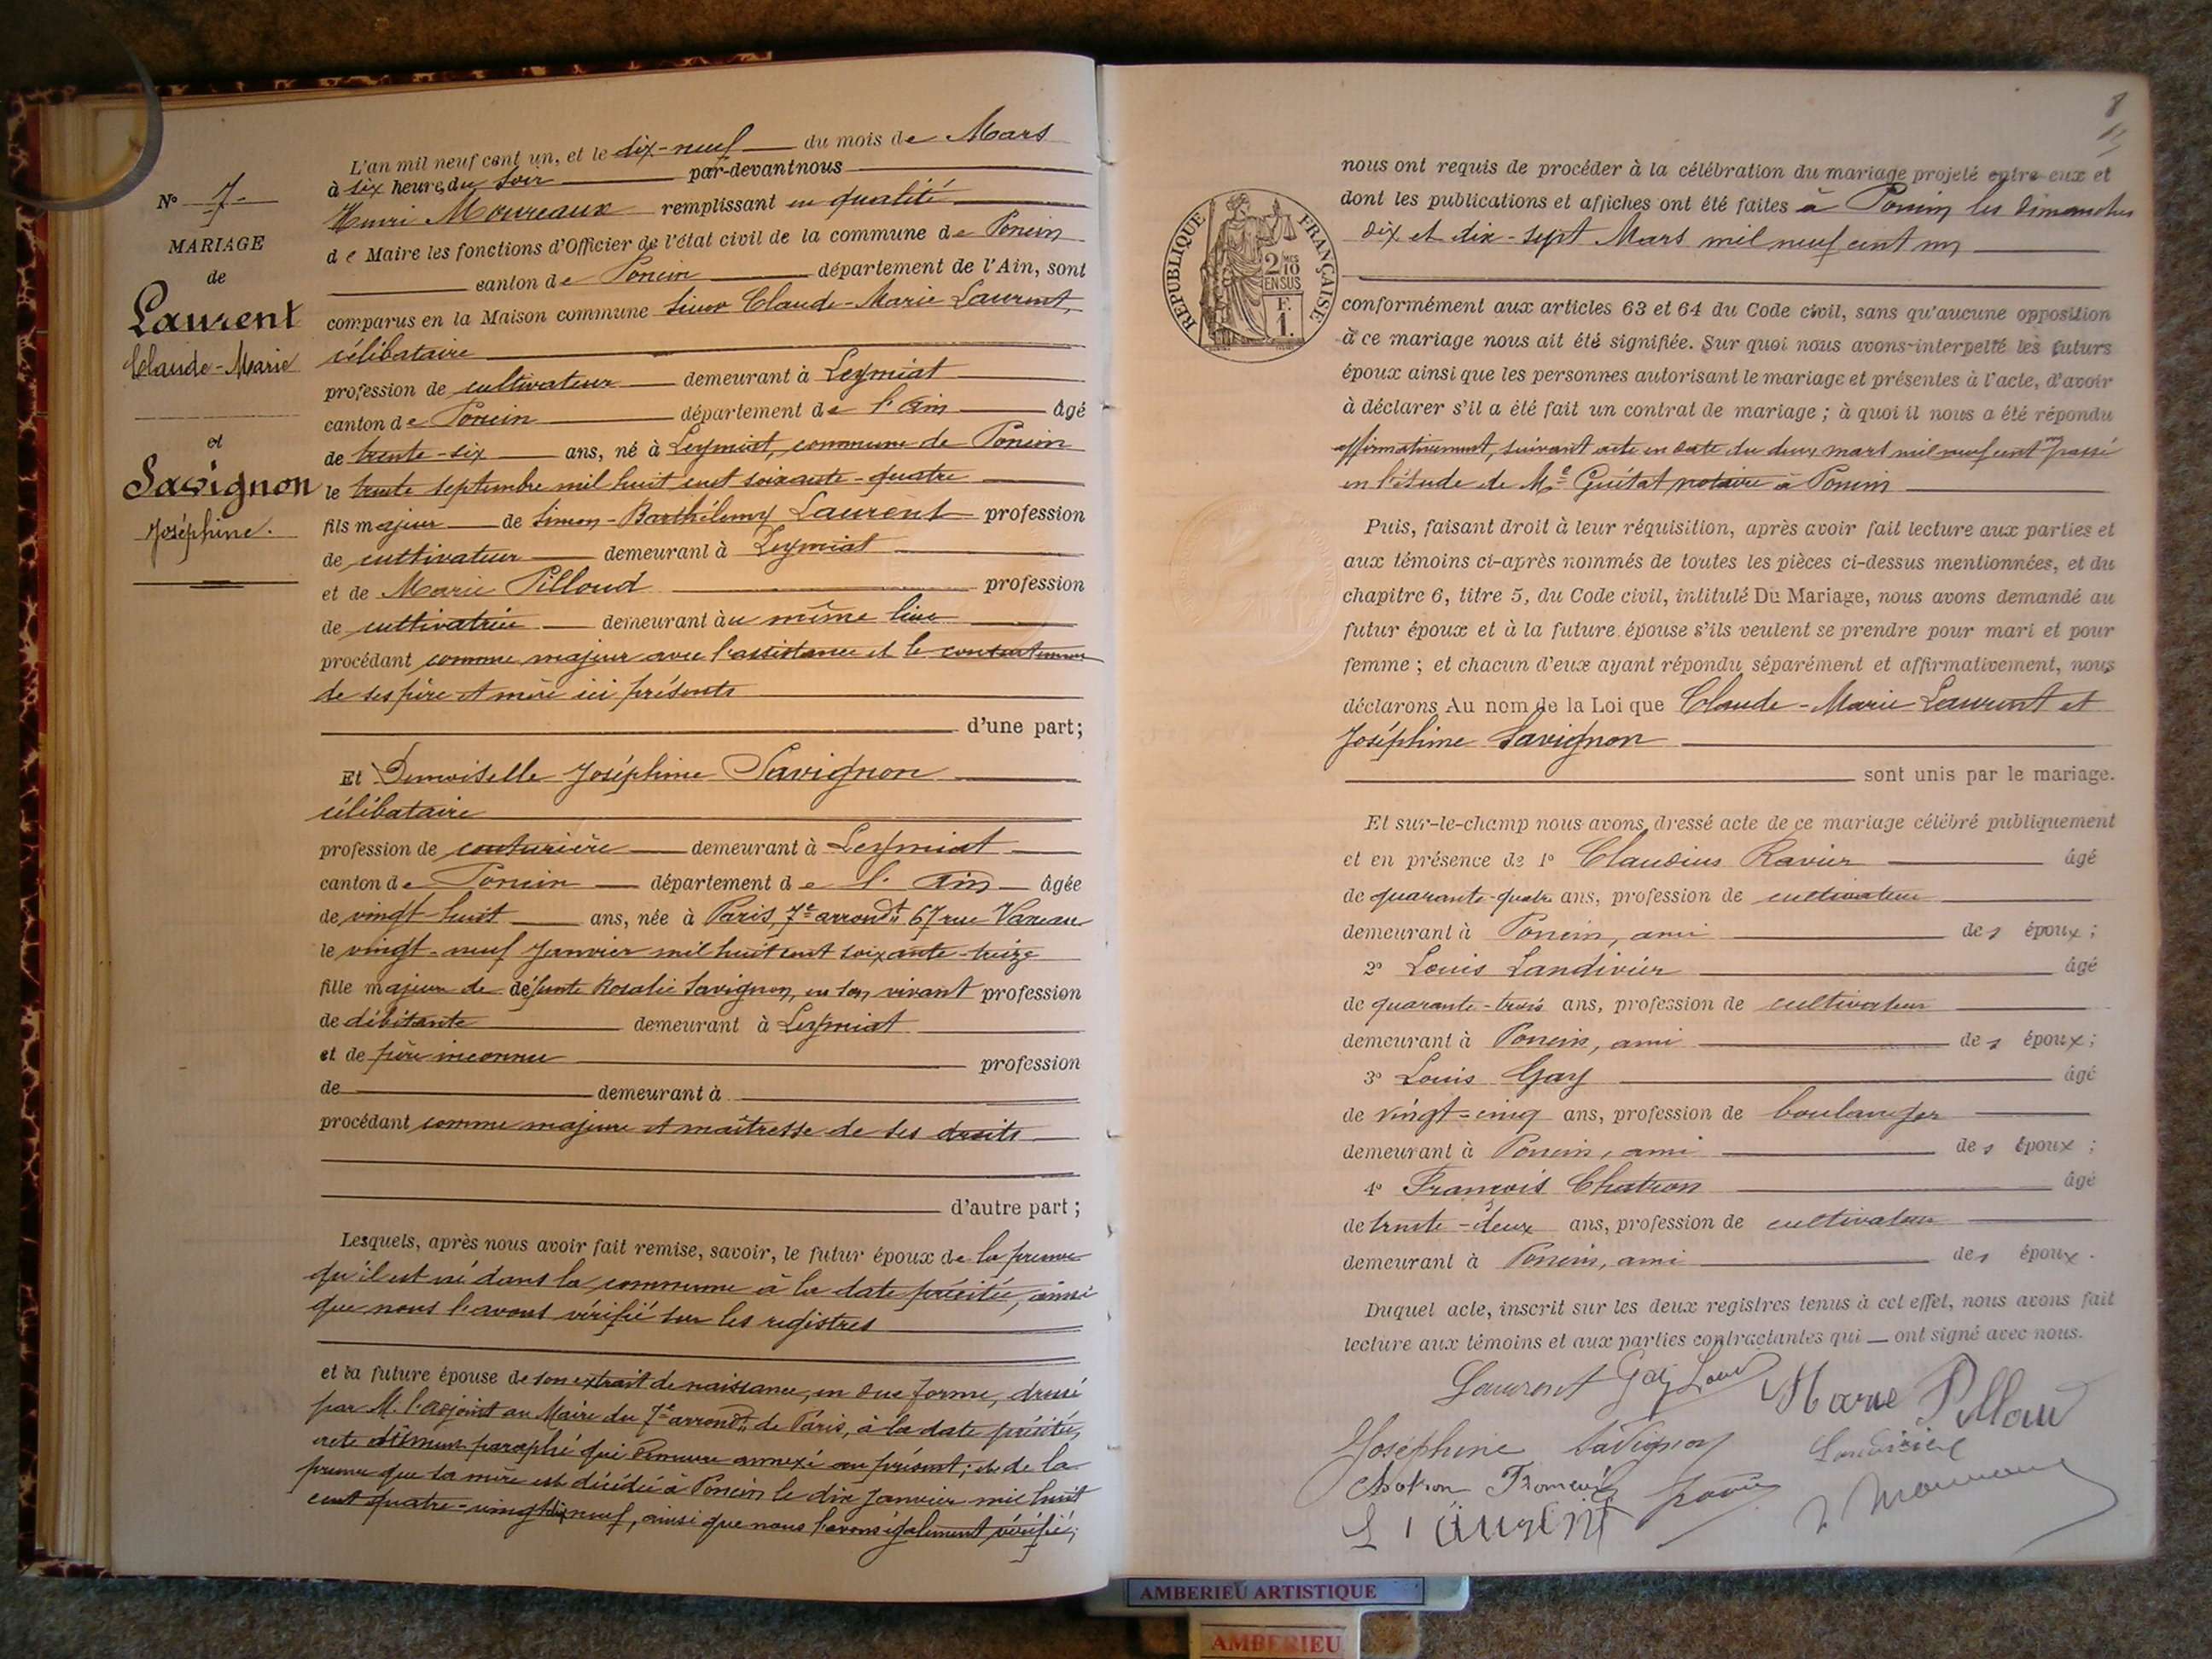 N° 7
MARIAGE
de
Laurent
Claude-Marie
et
Savignon
Joséphine.
L'an mil neuf cent un, et le dix-neuf du mois de Mars
à six heures du soir par-devant nous
Henri Moureaux remplissant en qualité
de Maire les fonctions d'Officier de l'état civil de la commune de Poncin
canton de Poncin département de l'Ain, sont
comparus en la Maison commune Sieur Claude-Marie Laurent,
célibataire
profession de cultivateur demeurant à Leymiat
canton de Poncin département de l'Ain âgé
de trente-six ans, né à Leymiat, commune de Poncin
le trente septembre mil huit cent soixante-quatre
fils majeur de Simon-Barthélemy Laurent profession
de cultivateur demeurant à Leymiat
et de Marie Pilloud profession
de cultivatrice demeurant au même lieu
procédant comme majeur avec l'assistance et le consentement
de ses père et mère ici présents
d'une part;
Et Demoiselle Joséphine Savignon
célibataire
profession de couturière demeurant à Leymiat
canton de Poncin département de l'Ain âgée
de vingt-huit ans, née à Paris, 7e arrondt 67 rue Vaneau
le vingt-neuf Janvier mil huit cent soixante-treize
fille majeure de défunte Rosalie Savignon, en son vivant profession
de débitante demeurant à Leymiat
et de père inconnu profession
de demeurant à
procédant comme majeure et maîtresse de ses droits
d'autre part;
Lesquels, après nous avoir fait remise, savoir, le futur époux de la preuve
qu'il est né dans la commune à la date précitée, ainsi
que nous l'avons vérifié sur les registres
et la future épouse de son extrait de naissance, en due forme, dressé
par M. l'adjoint au Maire du 7e arrondt de Paris, à la date précitée,
acte dûment paraphé qui demeure annexé au présent; et de la
preuve que sa mère est décédée à Poncin le dix Janvier mil huit
cent quatre-vingt-dix neuf, ainsi que nous l'avons également vérifié;
8
RÉPUBLIQUE FRANÇAISE
2/10MES
EN SUS
F.
1.
nous ont requis de procéder à la célébration du mariage projeté entre eux et
dont les publications et affiches ont été faites à Poncin les dimanches
dix et dix-sept Mars mil neuf cent un
conformément aux articles 63 et 64 du Code civil, sans qu'aucune opposition
à ce mariage nous ait été signifiée. Sur quoi nous avons interpellé les futurs
époux ainsi que les personnes autorisant le mariage et présentes à l'acte, d'avoir
à déclarer s'il a été fait un contrat de mariage; à quoi il nous a été répondu
affirmativement, suivant acte en date du deux mars mil neuf cent un passé
en l'étude de Me Guitat notaire à Poncin
Puis, faisant droit à leur réquisition, après avoir fait lecture aux parties et
aux témoins ci-après nommés de toutes les pièces ci-dessus mentionnées, et du
chapitre 6, titre 5, du Code civil, intitulé Du Mariage, nous avons demandé au
futur époux et à la future épouse s'ils veulent se prendre pour mari et pour
femme; et chacun d'eux ayant répondu séparément et affirmativement, nous
déclarons Au nom de la Loi que Claude-Marie Laurent et
Joséphine Savignon
sont unis par le mariage.
Et sur-le-champ nous avons dressé acte de ce mariage célébré publiquement
et en présence de 1° Claudius Ravier âgé
de quarante-quatre ans, profession de cultivateur
demeurant à Poncin, ami des époux;
2° Louis Landivier âgé
de quarante-trois ans, profession de cultivateur
demeurant à Poncin, ami des époux;
3° Louis Gay âgé
de vingt-cinq ans, profession de boulanger
demeurant à Poncin, ami des époux;
4° François Chatron âgé
de trente-deux ans, profession de cultivateur
demeurant à Poncin, ami des époux.
Duquel acte, inscrit sur les deux registres tenus à cet effet, nous avons fait
lecture aux témoins et aux parties contractantes qui ont signé avec nous.
Laurent Gay Louis Marie Pilloud
Joséphine Savignon Landivier
Chatron François
Laurent
AMBERIEU ARTISTIQUE
AMBERIEU